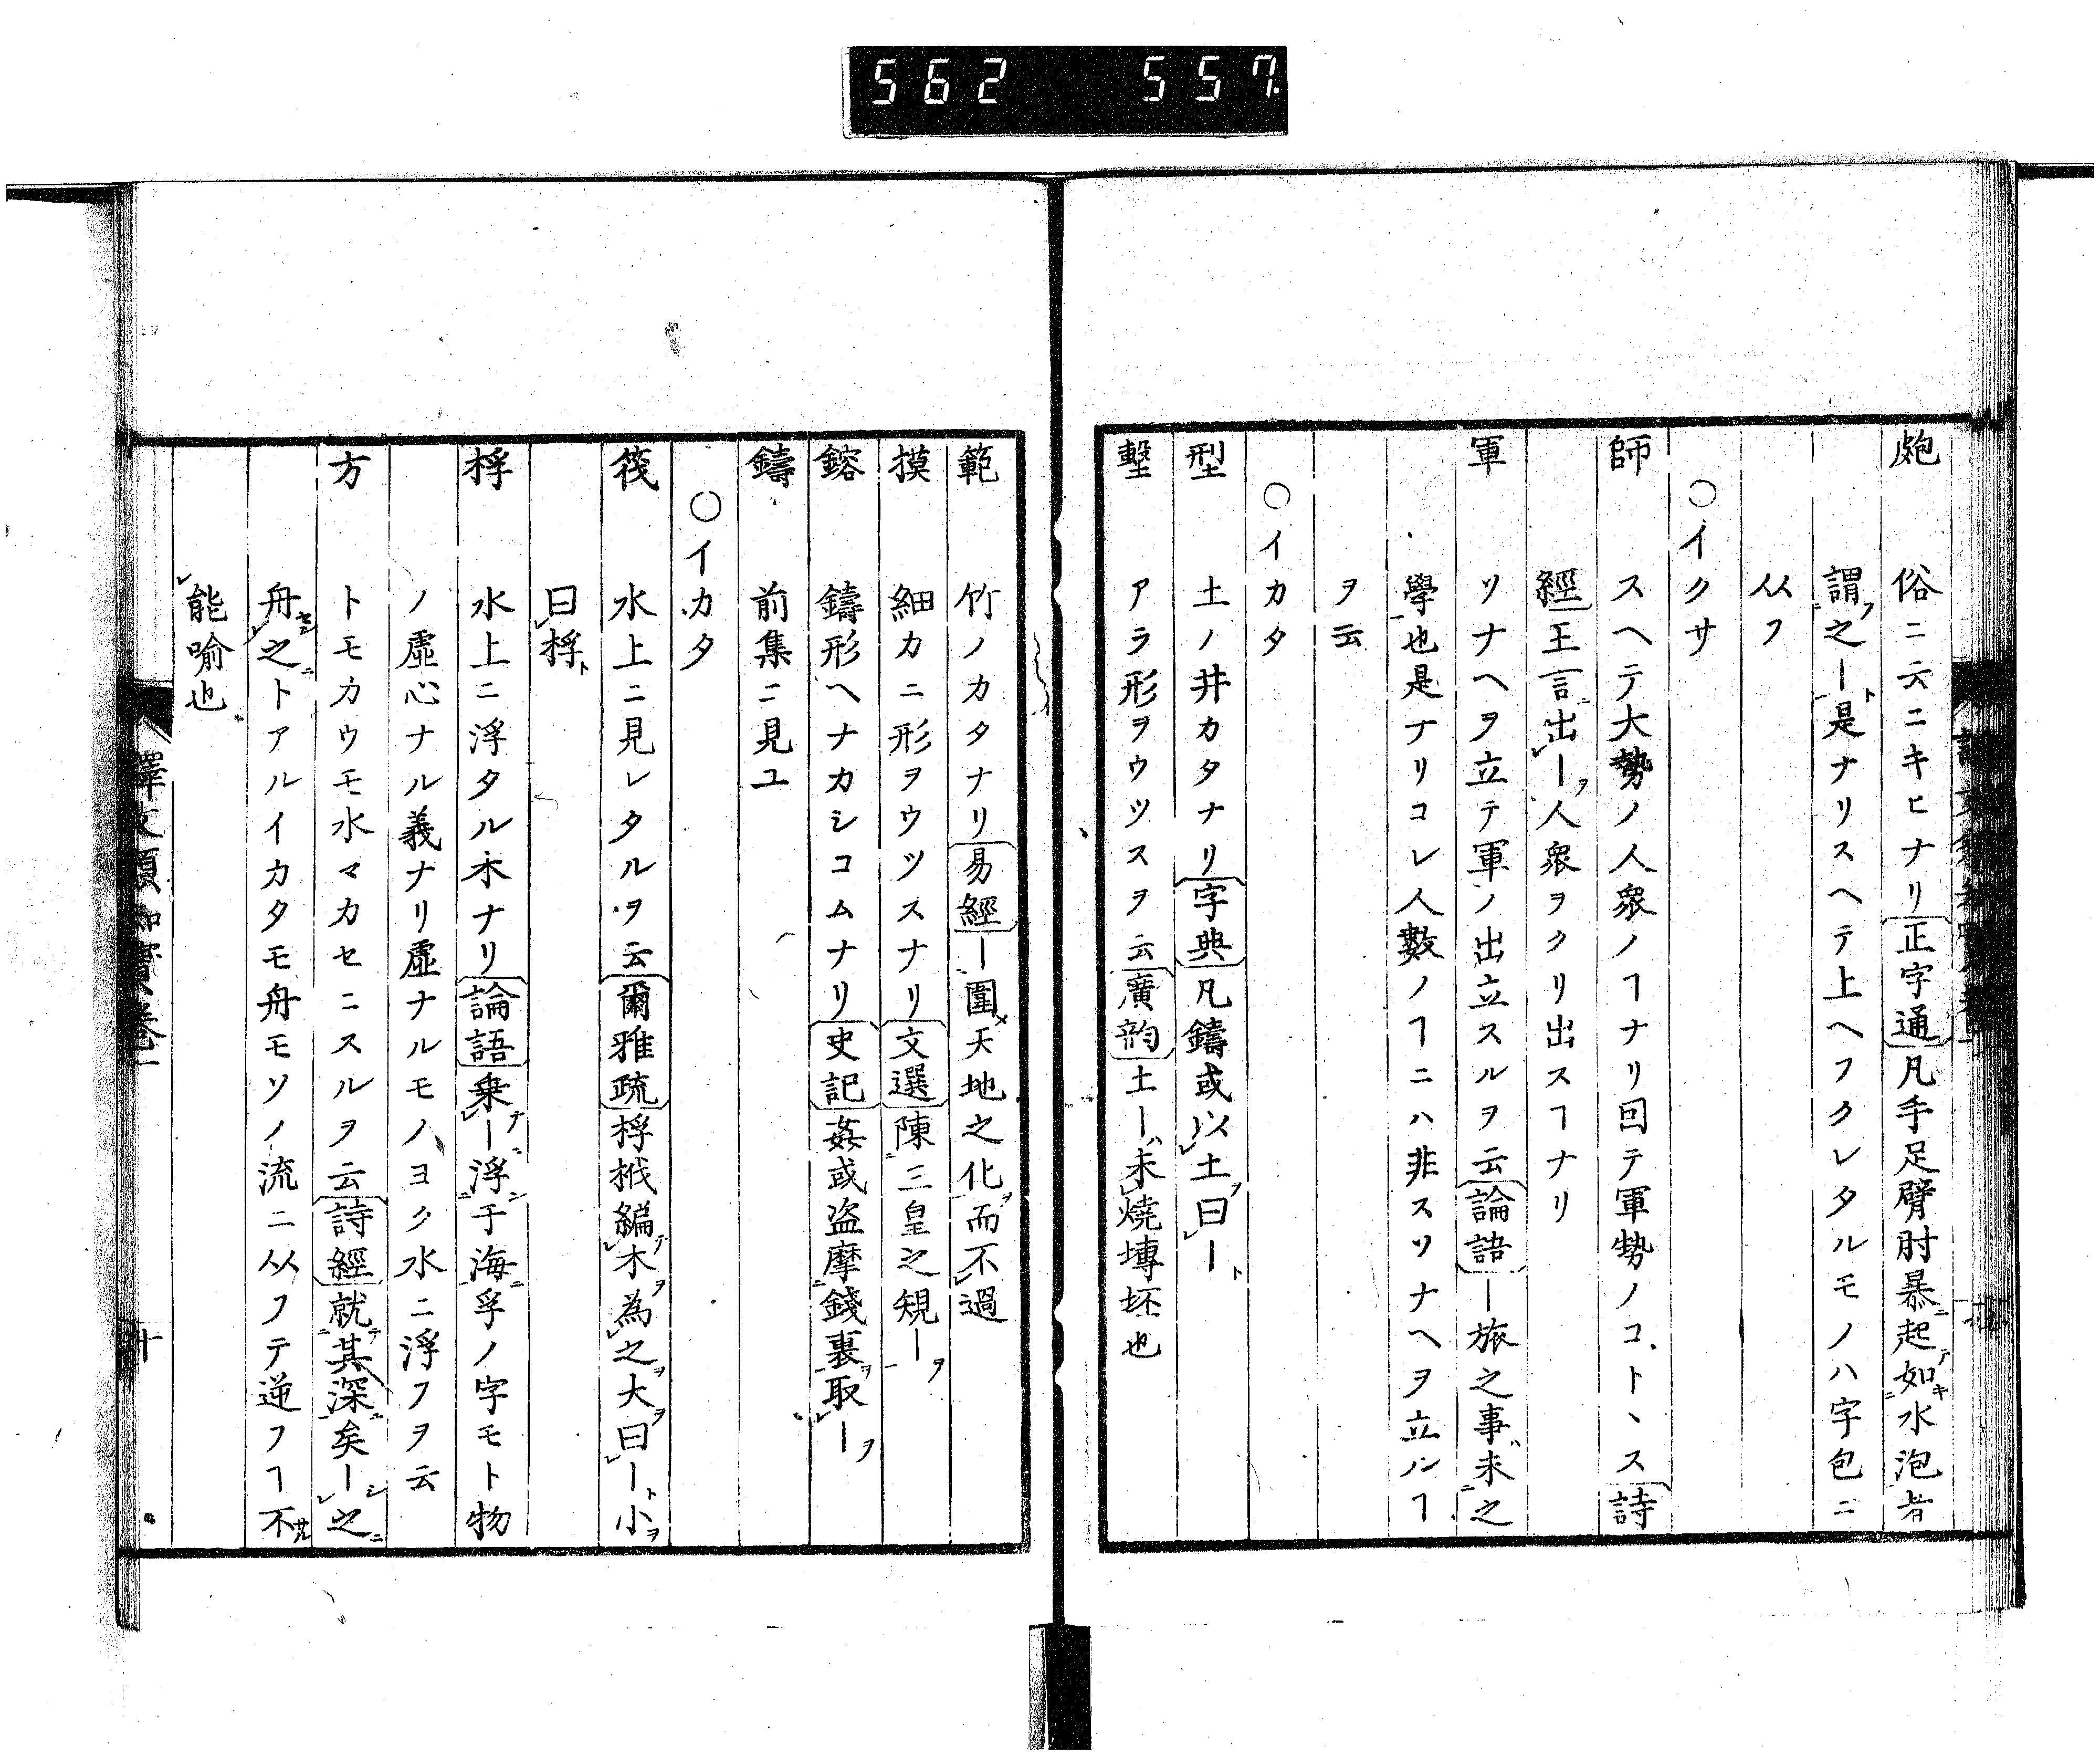 562 557
皰 俗ニ云ニキヒナリ正字通凡手足臂肘暴起如水泡者
謂之ー是ナリスヘテ上ヘフクレタルモノハ字包ニ
从フ
○イクサ
師 スヘテ大勢ノ人衆ノヿナリ囙テ軍勢ノコトヽス詩
經王言出ー人衆ヲクリ出スヿナリ
軍 ソナヘヲ立テ軍ノ出立スルヲ云論語ー旅之事未之
學也是ナリコレ人數ノヿニハ非スソナヘヲ立ルヿ
ヲ云
○イカタ
型 土ノ井カタナリ字典凡鑄或以土曰ー
墼 アラ形ヲウツスヲ云廣韵土ー未燒塼坯也
範 竹ノカタナリ易經ー圍天地之化而不過
摸 細カニ形ヲウツスナリ文選陳三皇之䂓ー
鎔 鑄形ヘナカシコムナリ史記姦或盗摩錢裏取ー
鑄 前集ニ見ユ
○イカタ
筏 水上ニ見レタルヲ云爾雅疏桴栰編木為之大曰ー小
曰桴
桴 水上ニ浮タル木ナリ論語乗ー浮于海孚ノ字モト物
ノ虛心ナル義ナリ虛ナルモノヨク水ニ浮フヲ云
方 トモカウモ水マカセニスルヲ云詩經就其深矣ー之
舟之トアルイカタモ舟モソノ流ニ从フテ逆フヿ不
能喻也
譯文須知實卷一 十